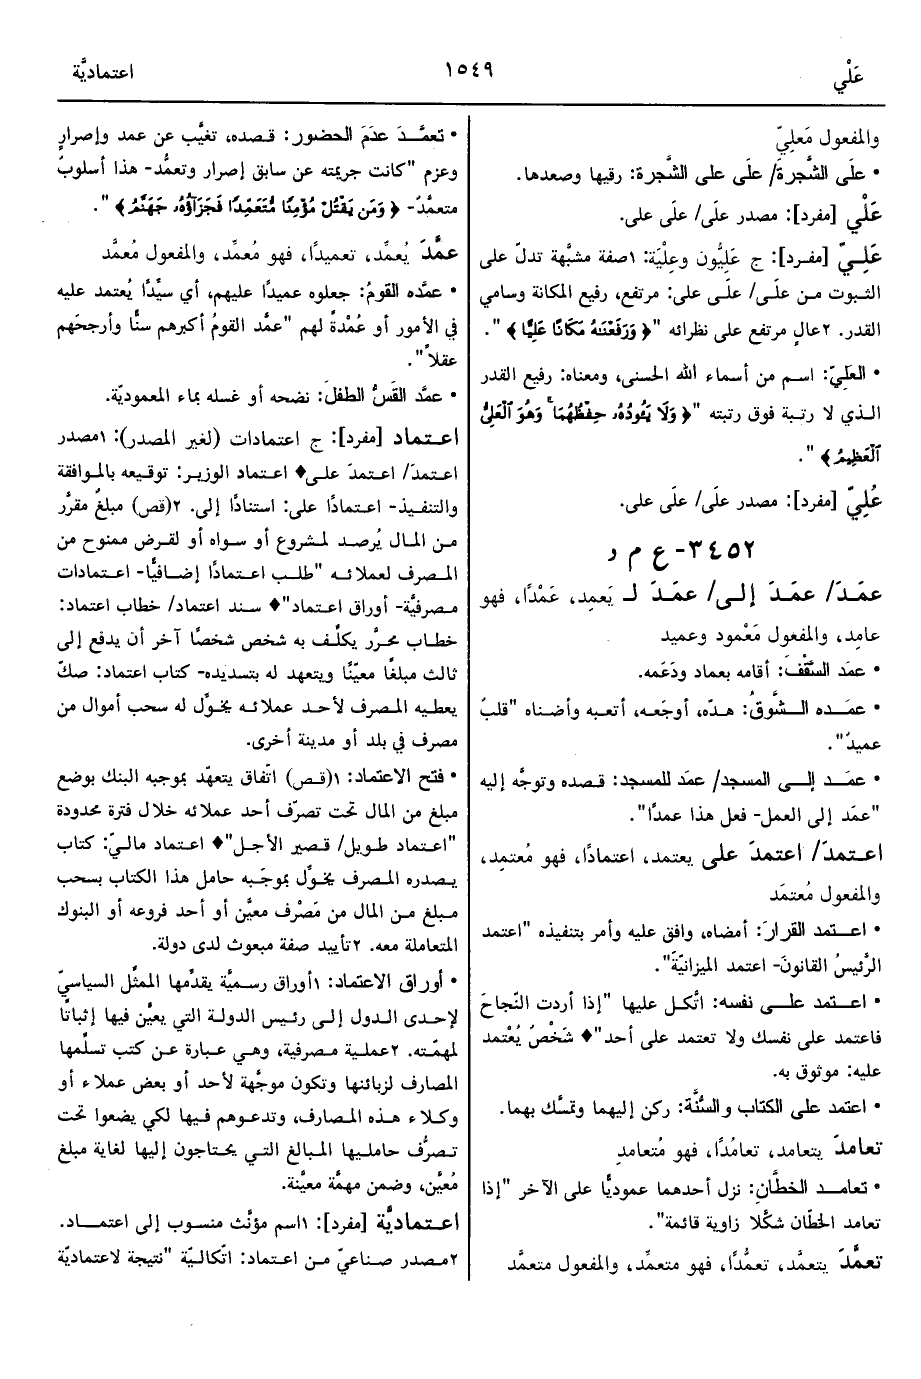 عَلْي
١٥٤٩
اعتماديَّة
والمفعول مَعلِيّ
• علَى الشَّجرة/ علَى على الشَّجرة: رقيها وصعدها.
عَلْي [مفرد]: مصدر علَى/ علَى على.
عَلِيّ [مفرد]: ج عَلِيُّون وعِلْيَة: ١صفة مشبَّهة تدلّ على
الثبوت من علَى/ علَى على: مرتفع، رفيع المكانة وسامي
القدر. ٢عالٍ مرتفع على نظرائه "﴿ وَرَفَعْنَٰهُ مَكَانًا عَلِيًّا ﴾ ".
• العَلِيّ: اسم من أسماء الله الحسنى، ومعناه: رفيع القدر
الذي لا رتبة فوق رتبته "﴿ وَلَا يَـُٔودُهُۥ حِفْظُهُمَا ۚ وَهُوَ ٱلْعَلِىُّ
ٱلْعَظِيمُ ﴾ ".
عُلِيّ [مفرد]: مصدر علَى/ علَى على.
٣٤٥٢- ع م د
عمَدَ/ عمَدَ إلى/ عمَدَ لـ يَعمِد، عَمْدًا، فهو
عامِد، والمفعول مَعْمود وعميد
• عمَد السَّقْفَ: أقامه بعماد ودَعَمه.
• عمَـده الـشَّوقُ: هدّه، أوجَعه، أتعبه وأضناه "قلبٌ
عميدٌ".
• عمَـد إلـى المسجد/ عمَد للمسجد: قـصده وتوجَّه إليه
"عمَد إلى العمل- فعل هذا عمدًا".
اعتمدَ/ اعتمدَ على يعتمد، اعتمادًا، فهو مُعتمِد،
والمفعول مُعتمَد
• اعـتمد القرارَ: أمضاه، وافق عليه وأمر بتنفيذه "اعتمد
الرَّئيسُ القانونَ- اعتمد الميزانيّةَ".
• اعـتمد علـى نفسه: اتَّكل عليها "إذا أردت النَّجاحَ
فاعتمد على نفسك ولا تعتمد على أحد"♦ شَخْصٌ يُعْتمد
عليه: موثوق به.
• اعتمد على الكتاب والسُّنَّة: ركن إليهما وتمسَّك بهما.
تعامدَ يتعامد، تعامُدًا، فهو مُتعامِد
• تعامـد الخطَّان: نزل أحدهما عموديًّا على الآخر "إذا
تعامد الخطّان شكَّلا زاوية قائمة".
تعمَّدَ يتعمَّد، تعمُّدًا، فهو متعمِّد، والمفعول متعمَّد
• تعمَّـدَ عدَمَ الحضور: قصده، تغيَّب عن عمد وإصرار
وعزم "كانت جريمته عن سابق إصرار وتعمُّد- هذا أسلوبٌ
متعمَّدٌ- ﴿ وَمَن يَقْتُلْ مُؤْمِنًا مُّتَعَمِّدًا فَجَزَآؤُهُۥ جَهَنَّمُ ﴾ ".
عمَّدَ يُعمِّد، تعميدًا، فهو مُعمِّد، والمفعول مُعمَّد
• عمَّده القومُ: جعلوه عميدًا عليهم، أي سيِّدًا يُعتمد عليه
في الأمور أو عُمْدةً لهم "عمَّد القومُ أكبرهم سنًّا وأرجحَهم
عقلاً".
• عمَّد القَسُّ الطفلَ: نضحه أو غسله بماء المعموديّة.
اعتماد [مفرد]: ج اعتمادات (لغير المصدر): ١مصدر
اعتمدَ/ اعتمدَ علـى♦ اعتماد الوزير: توقيعه بالموافقة
والتنفيذ- اعتمادًا على: استنادًا إلى. ٢(قص) مبلغٌ مقرَّر
من المال يُرصد لمشروع أو سواه أو لقرض ممنوح من
المصرف لعملائه "طلب اعتمادًا إضافيًّا- اعتمادات
مصرفيَّة- أوراق اعتماد"♦ سند اعتماد/ خطاب اعتماد:
خطاب محرَّر يكلِّف به شخص شخصًا آخر أن يدفع إلى
ثالث مبلغًا معيّنًا ويتعهد له بتسديده- كتاب اعتماد: صكّ
يعطيه المصرف لأحد عملائه يخوِّل له سحب أموال من
مصرف في بلد أو مدينة أخرى.
• فتح الاعتماد: ١(قـص) اتّفاق يتعهّد بموجبه البنك بوضع
مبلغ من المال تحت تصرّف أحد عملائه خلال فترة محدودة
"اعتماد طويل/ قصير الأجل"♦ اعتماد ماليّ: كتاب
يـصدره المصرف يخوِّل بموجَبه حامل هذا الكتاب بسحب
مبلغ من المال من مَصْرف معيَّن أو أحد فروعه أو البنوك
المتعاملة معه. ٢تأييد صفة مبعوث لدى دولة.
• أوراق الاعتماد: ١أوراق رسميَّة يقدِّمها الممثّل السياسيّ
لإحدى الدول إلى رئيس الدولة التي يعيَّن فيها إثباتًا
لمهمّته. ٢عملية مصرفية، وهي عبارة عن كتب تسلِّمها
المصارف لزبائنها وتكون موجَّهة لأحد أو بعض عملاء أو
وكلاء هذه المصارف، وتدعوهم فيها لكي يضعوا تحت
تصرُّف حامليها المبالغ التي يحتاجون إليها لغاية مبلغ
مُعيَّن، وضمن مهمَّة معيَّنة.
اعتماديَّة [مفرد]: ١اسم مؤنَّث منسوب إلى اعتمـاد.
٢مصدر صناعيّ من اعتماد: اتّكاليّة "نتيجة لاعتماديّة